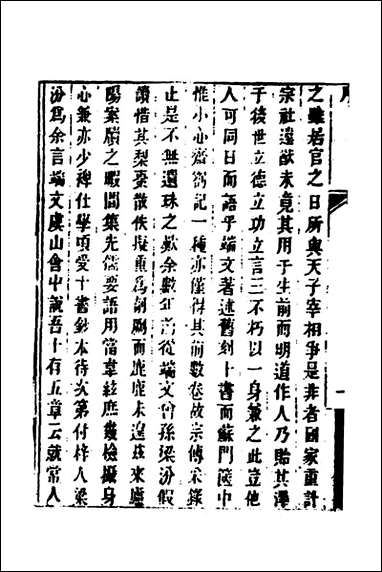 之雖居官之日所與天子宰相爭是非者國家重計
宗社遠猷未竟其用于生前而明道作人乃貽其澤
于後世立德立功立言三不朽以一身兼之此豈他
人可同日而語乎端文著述舊刻十書而蘇門篋中
惟小心齋劄記一種亦僅得其前數卷故宗傳采錄
止是不無遺珠之歎余數年前從端文曾孫梁汾假
讀惜其梨棗散佚擬重為剞劂而鹿鹿未遑茲來廬
陽案牘之暇間集先儒要語用當韋絃庶幾檢攝身
心兼亦少裨仕學頃爰十書鈔本待次第付梓人梁
汾為余言端文虞山會中說吾十有五章云就常人